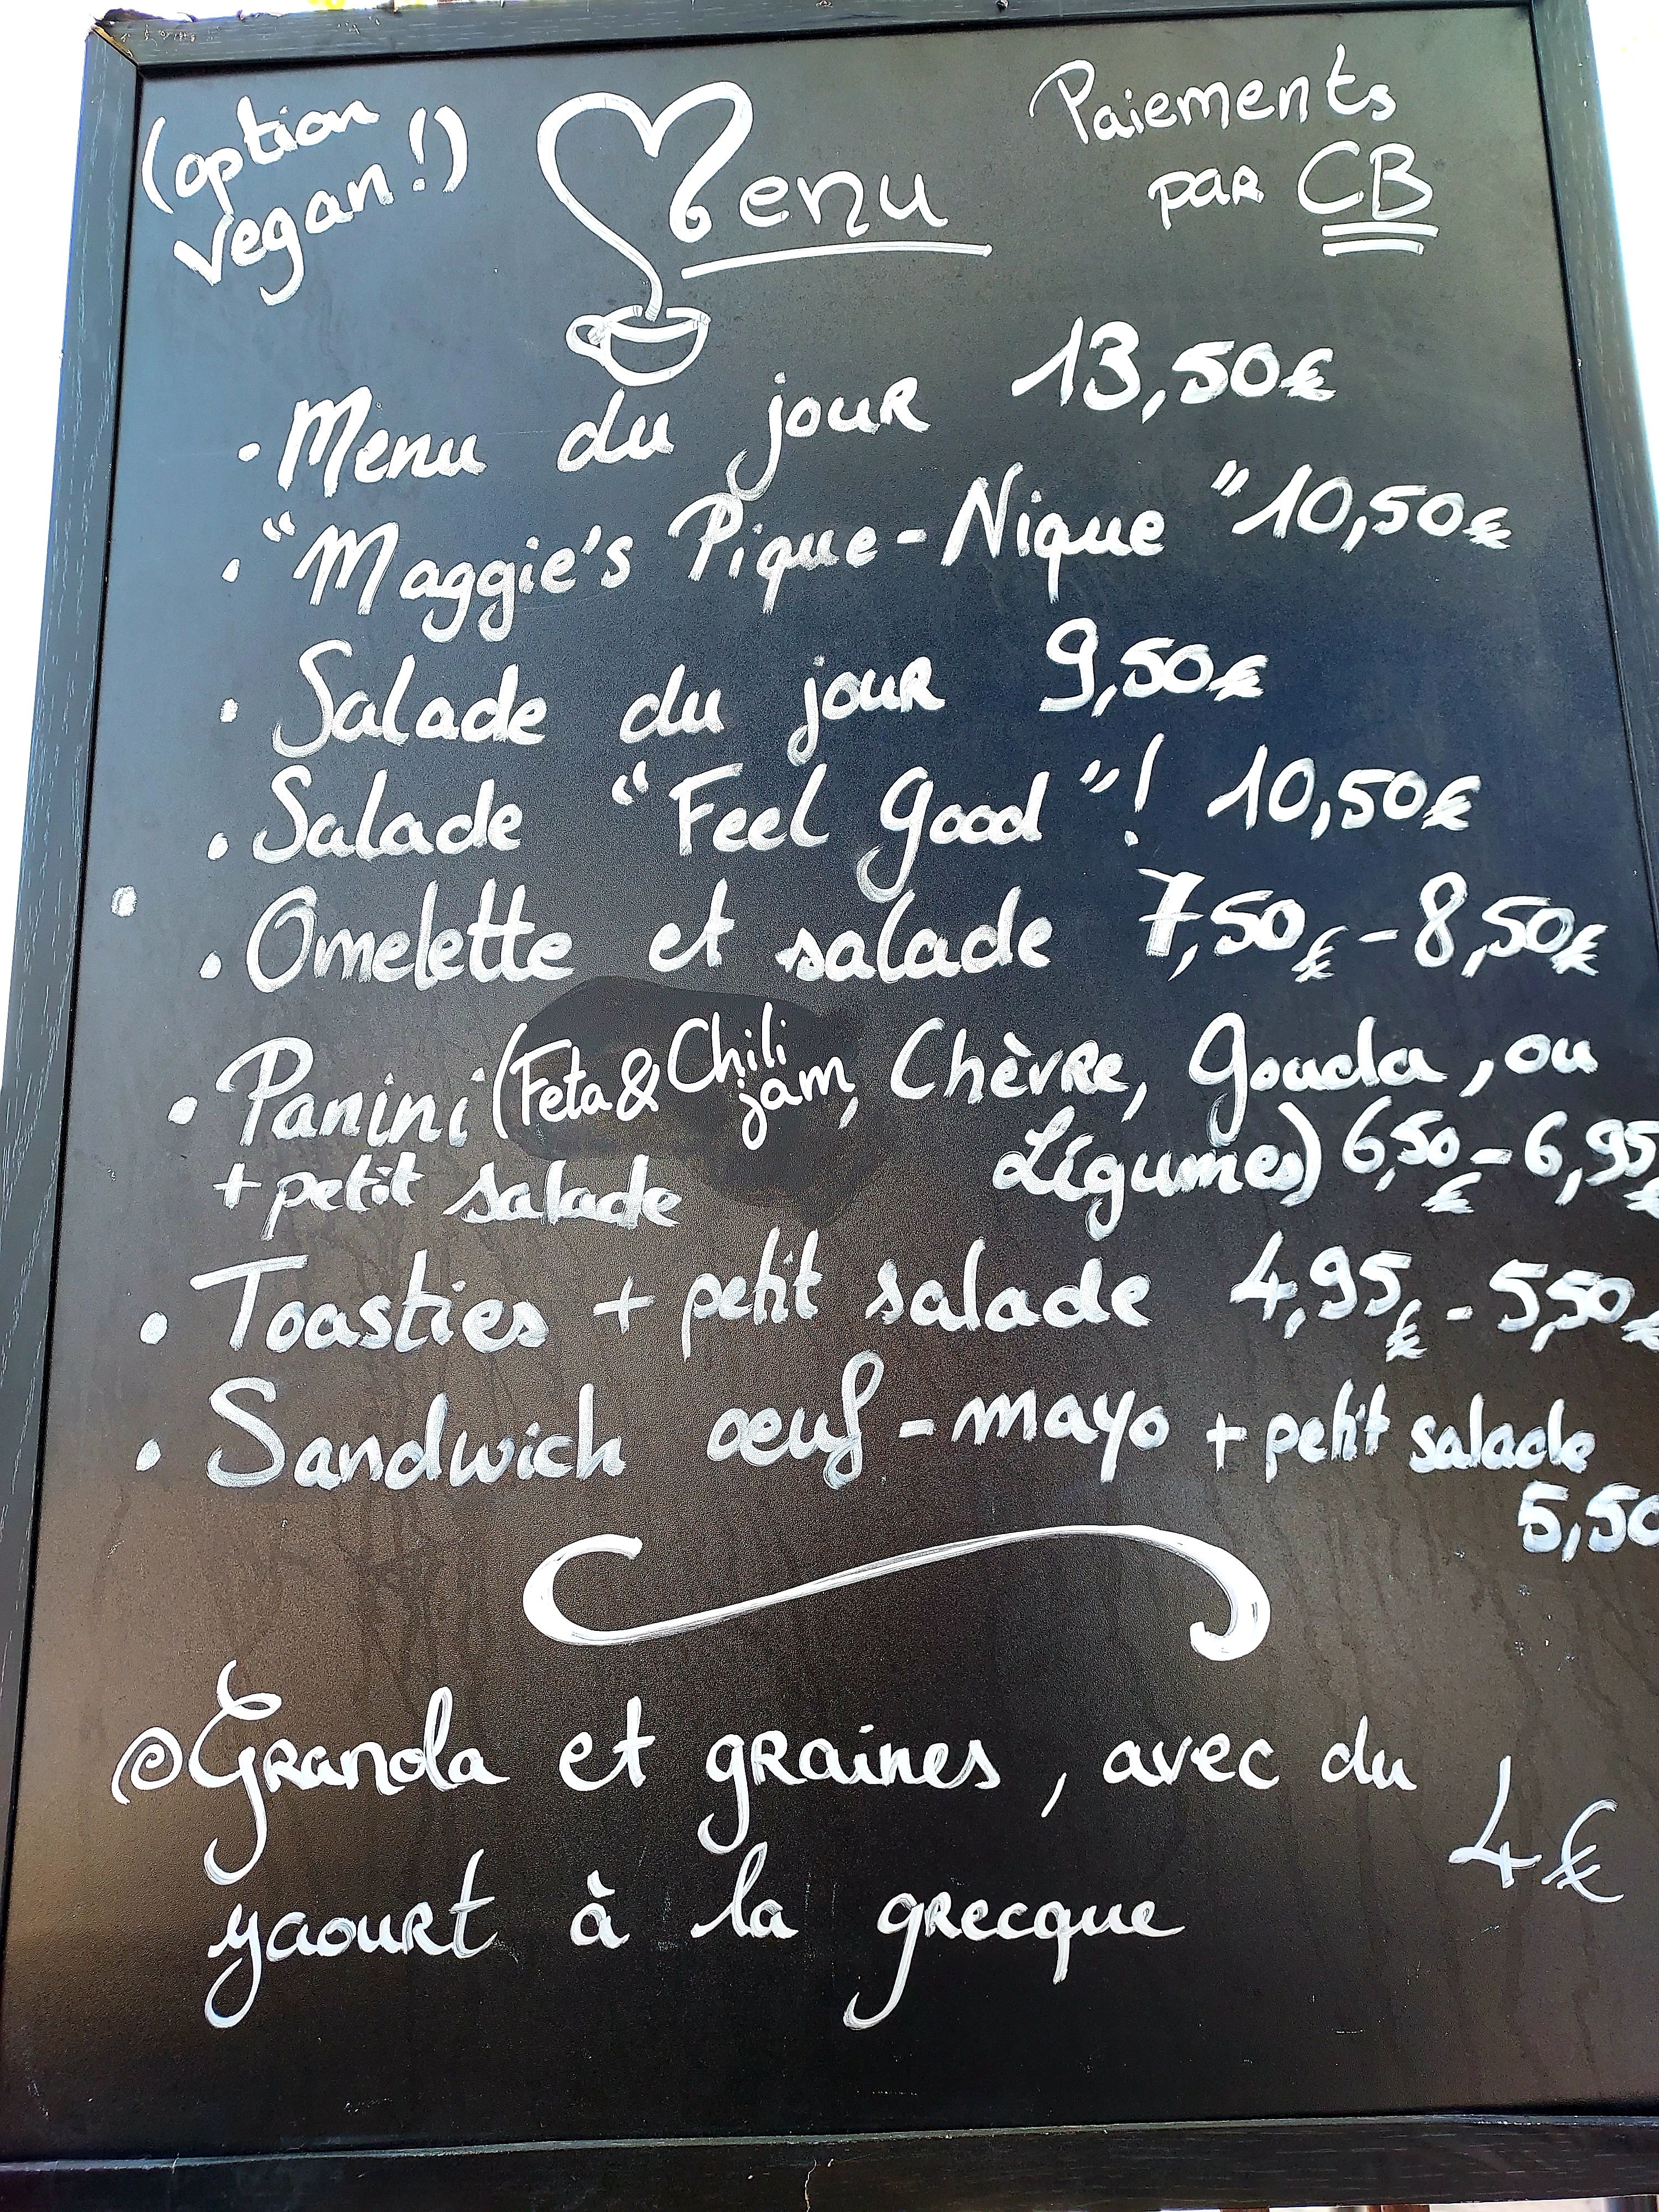 (option
vegan!)
Menu
Paiements
par CB
• Menu du jour 13,50€
• "Maggie's Pique-Nique" 10,50€
• Salade du jour 9,50€
• Salade "Feel Good"! 10,50€
• Omelette et salade 7,50€ - 8,50€
• Panini (Feta & Chili jam, Chèvre, Gouda, ou
Légumes) 6,50€ - 6,95€
+ petit salade
• Toasties + petit salade 4,95€ - 5,50€
• Sandwich œuf - mayo + petit salade
5,50
Granola et graines, avec du
yaourt à la grecque
4€